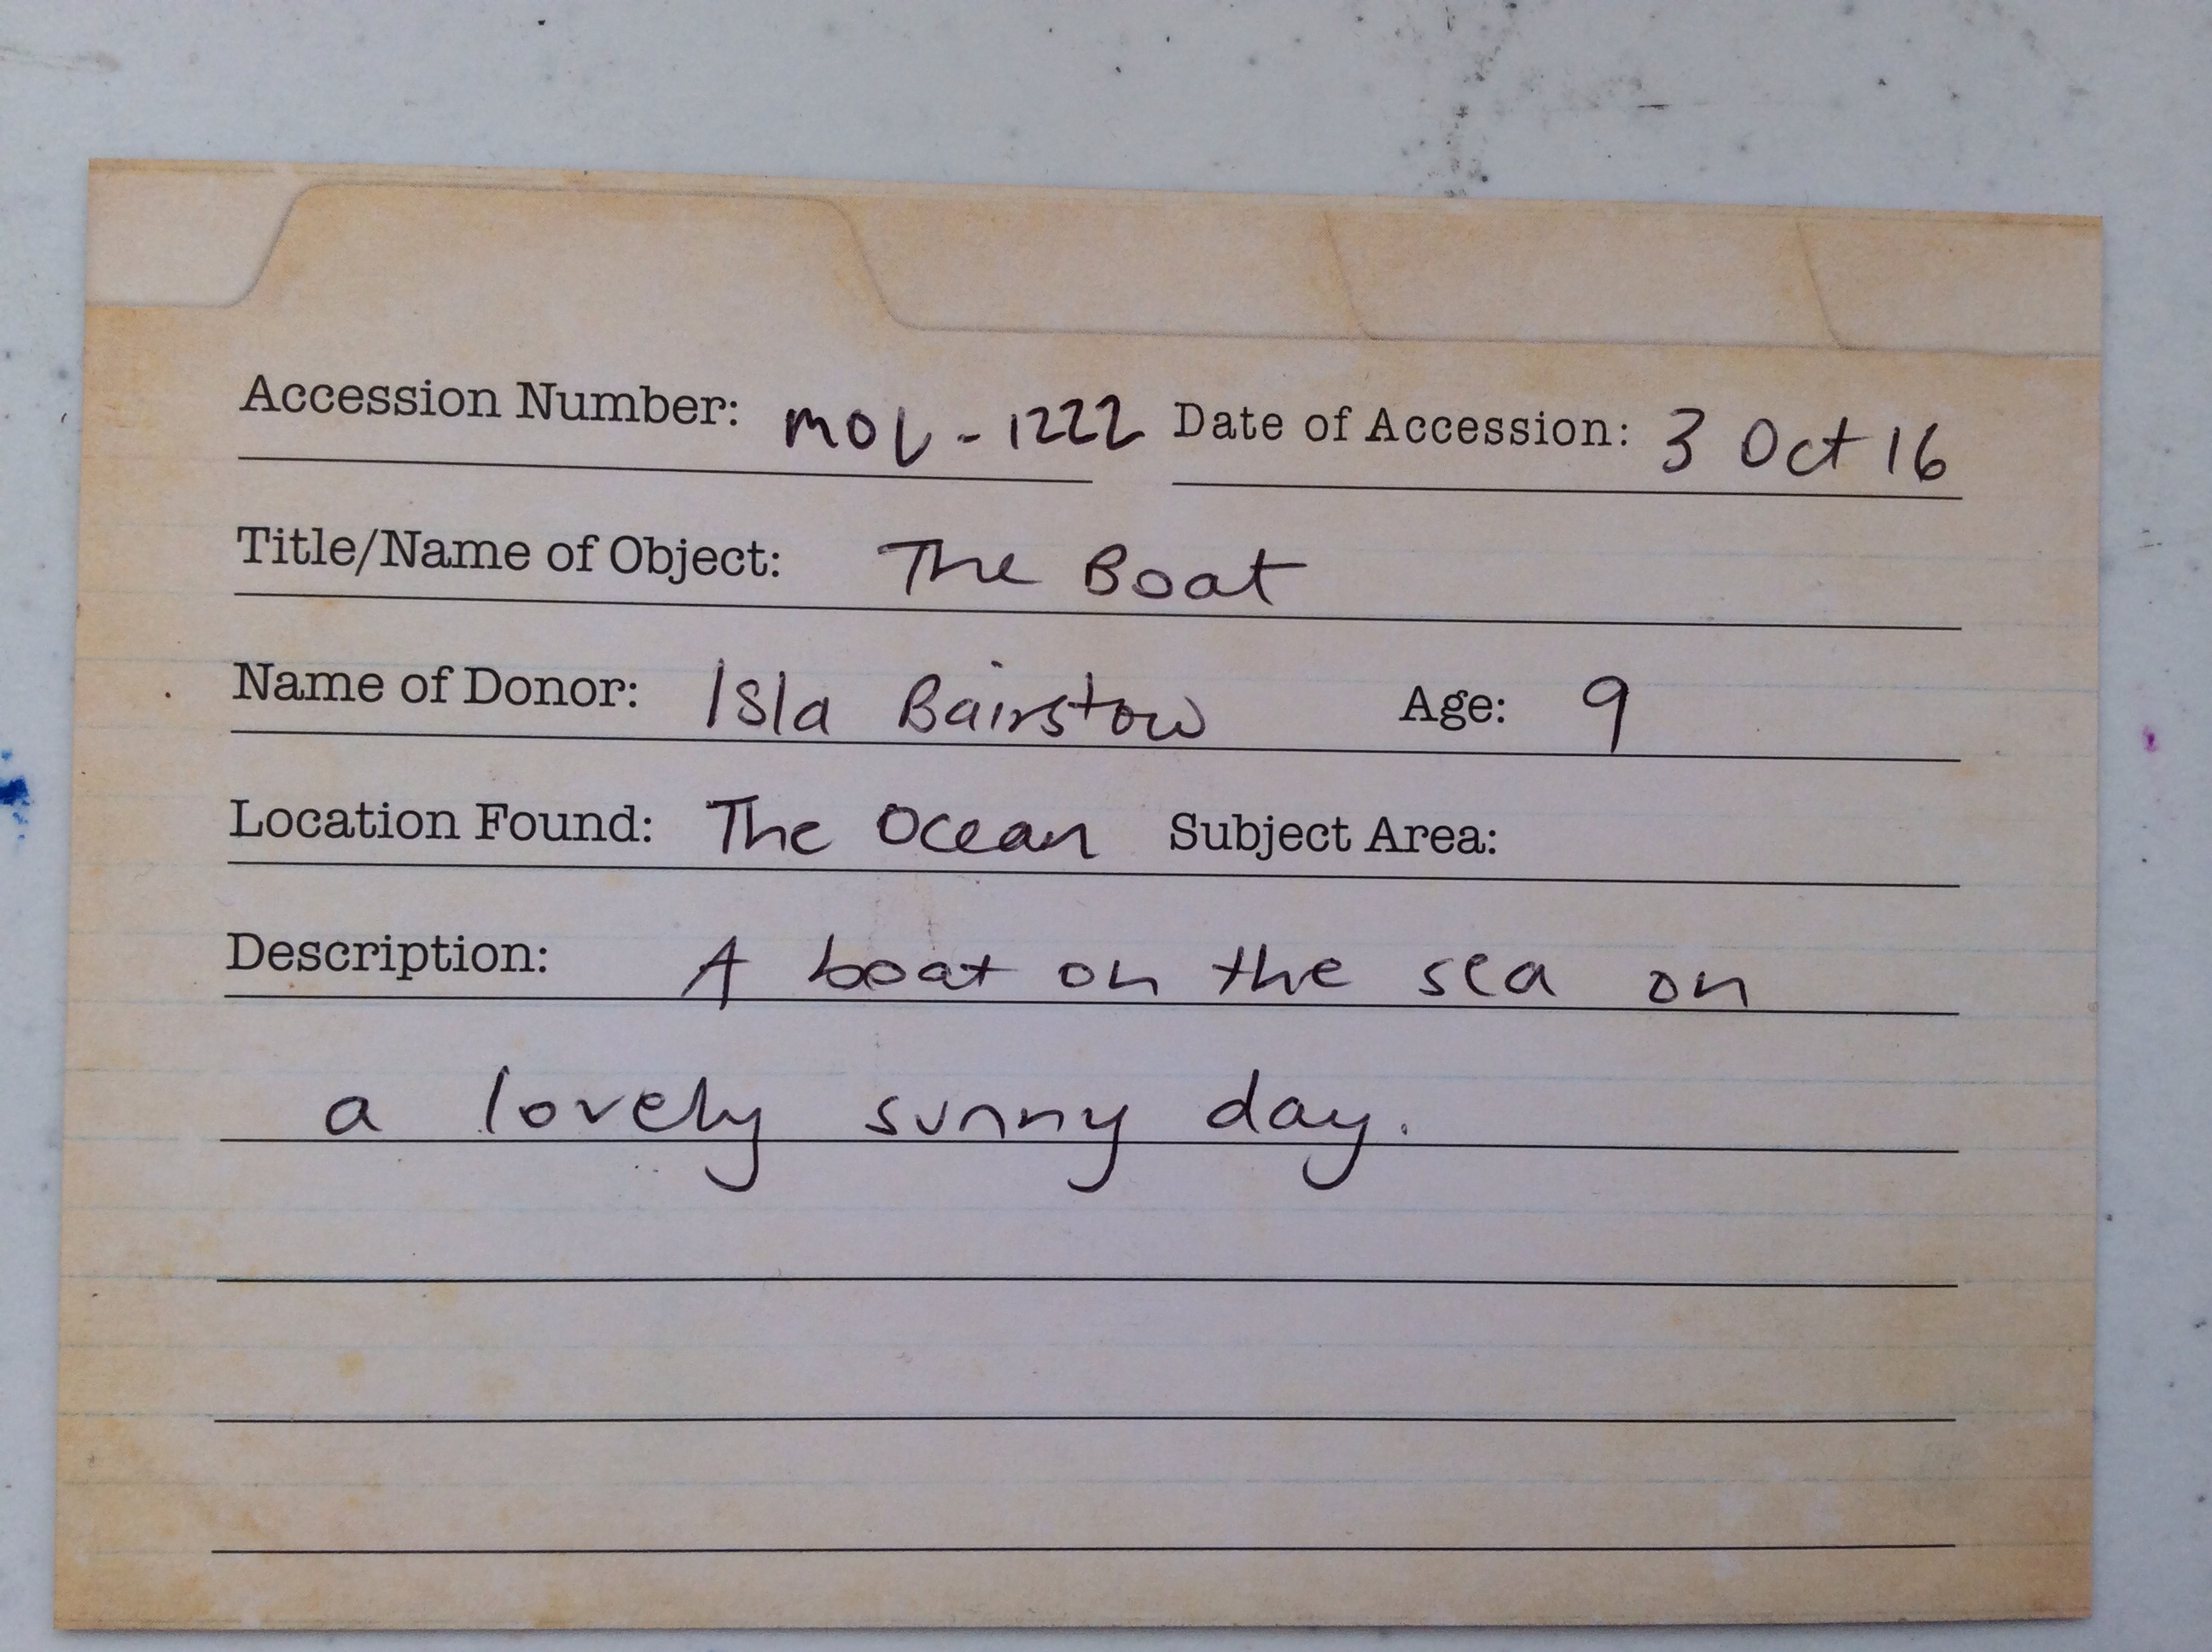 Accession Number: MOL-1222 Date of Accession: 3 Oct 16
Title/Name of Object: The Boat
Name of Donor: Isla Bairstow Age: 9
Location Found: The Ocean Subject Area:
Description: A boat on the sea on
a lovely sunny day.